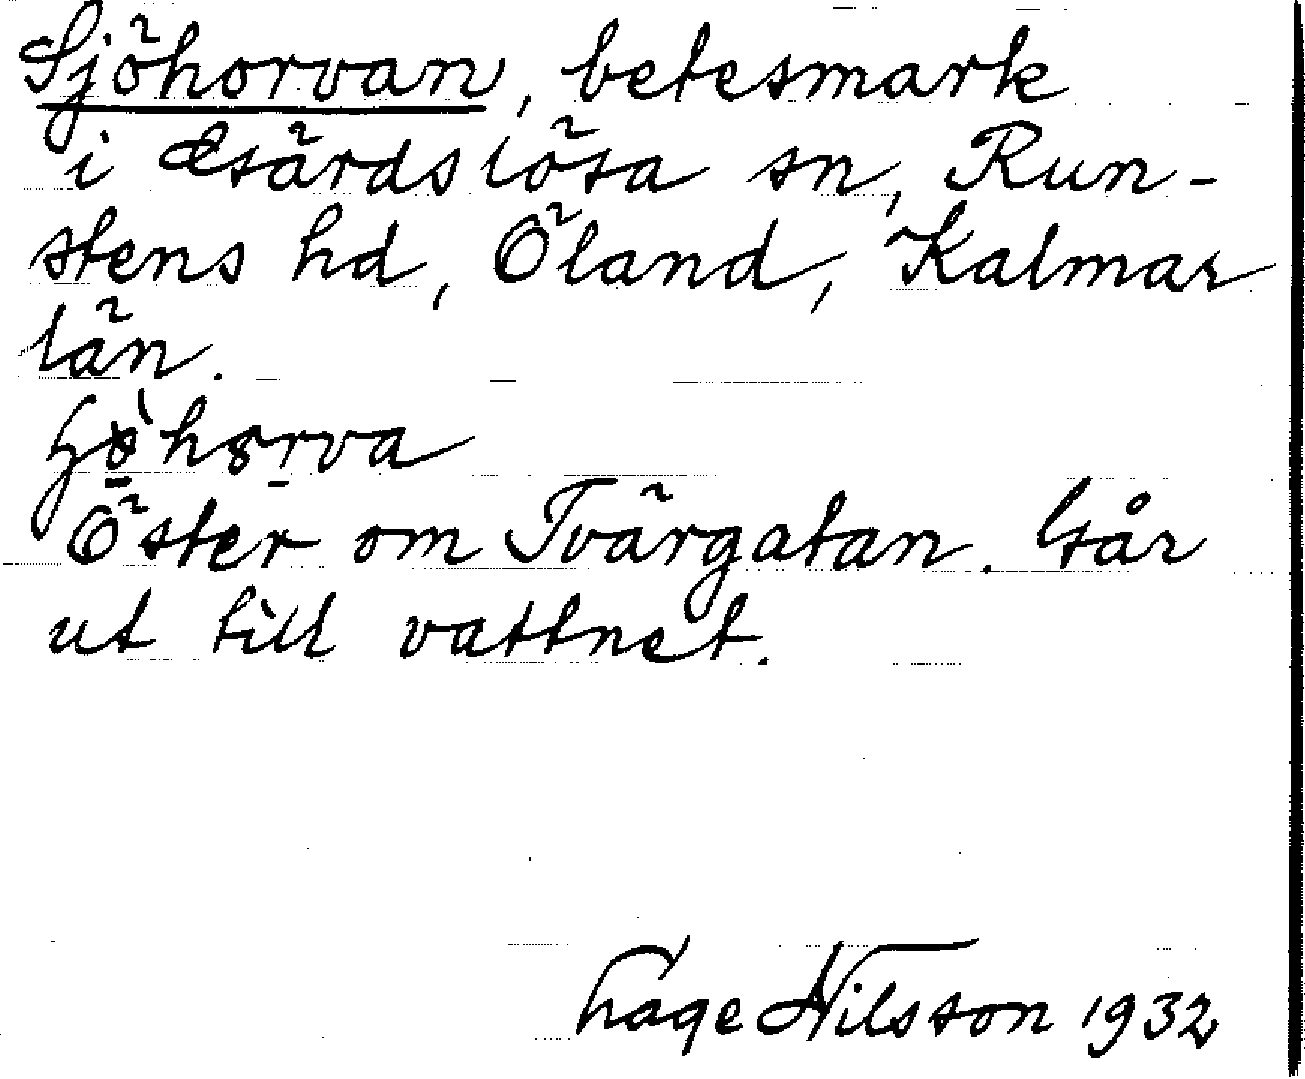 Sjöhorvan, betesmark
i Gärdslösa sn, Run-
stens hd, Öland, Kalmar
län.
Öster om Tvärgatan. Går
ut till vattnet.
Tage Nilsson 1932